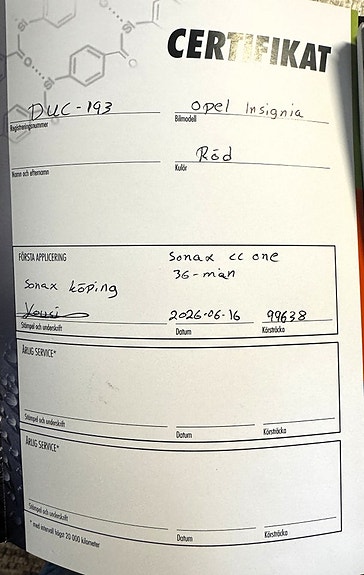 CERTIFIKAT
DUC-193
Registreringsnummer
Opel Insignia
Bilmodell
Namn och efternamn
Röd
Kulör
FÖRSTA APPLICERING
Sonax cc one
36-mån
Sonax köping
Stämpel och underskrift
2026-06-16
Datum
99638
Körsträcka
ÅRLIG SERVICE*
Stämpel och underskrift
Datum
Körsträcka
ÅRLIG SERVICE*
Stämpel och underskrift
Datum
Körsträcka
* med intervall högst 20 000 kilometer